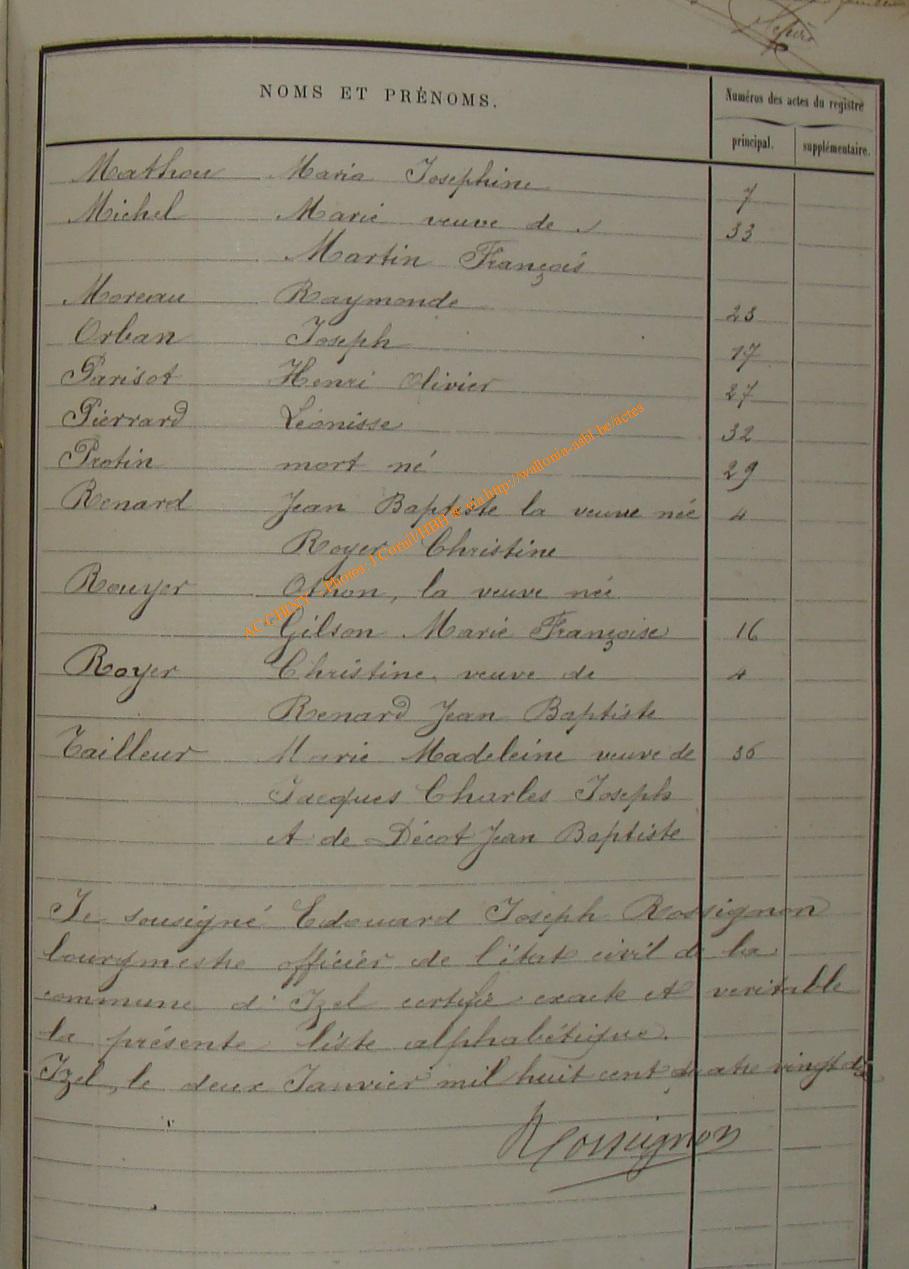 Repère
NOMS ET PRÉNOMS.
Numéros des actes du registre
principal. supplémentaire.
Mathou Maria Josephine 7
Michel Marie veuve de 33
Martin François
Moreau Raymonde 23
Orban Joseph 17
Parisot Henri Olivier 27
Pierrard Léonisse 32
Protin mort né 29
Renard Jean Baptiste la veuve née 4
Royer Christine
Rouyer Othon, la veuve née
Gilson Marie Françoise 16
Royer Christine, veuve de 4
Renard Jean Baptiste
Tailleur Marie Madeleine veuve de 36
Jacques Charles Joseph
et de Décot Jean Baptiste
Je sousigné Edouard Joseph Rossignon
bourgmestre officier de l'état civil de la
commune d'Izel certifie exacte et veritable
la présente liste alphabétique.
Izel, le deux Janvier mil huit cent quatre vingt dix
Rossignon
via http://wallonia-asbl.be/actes